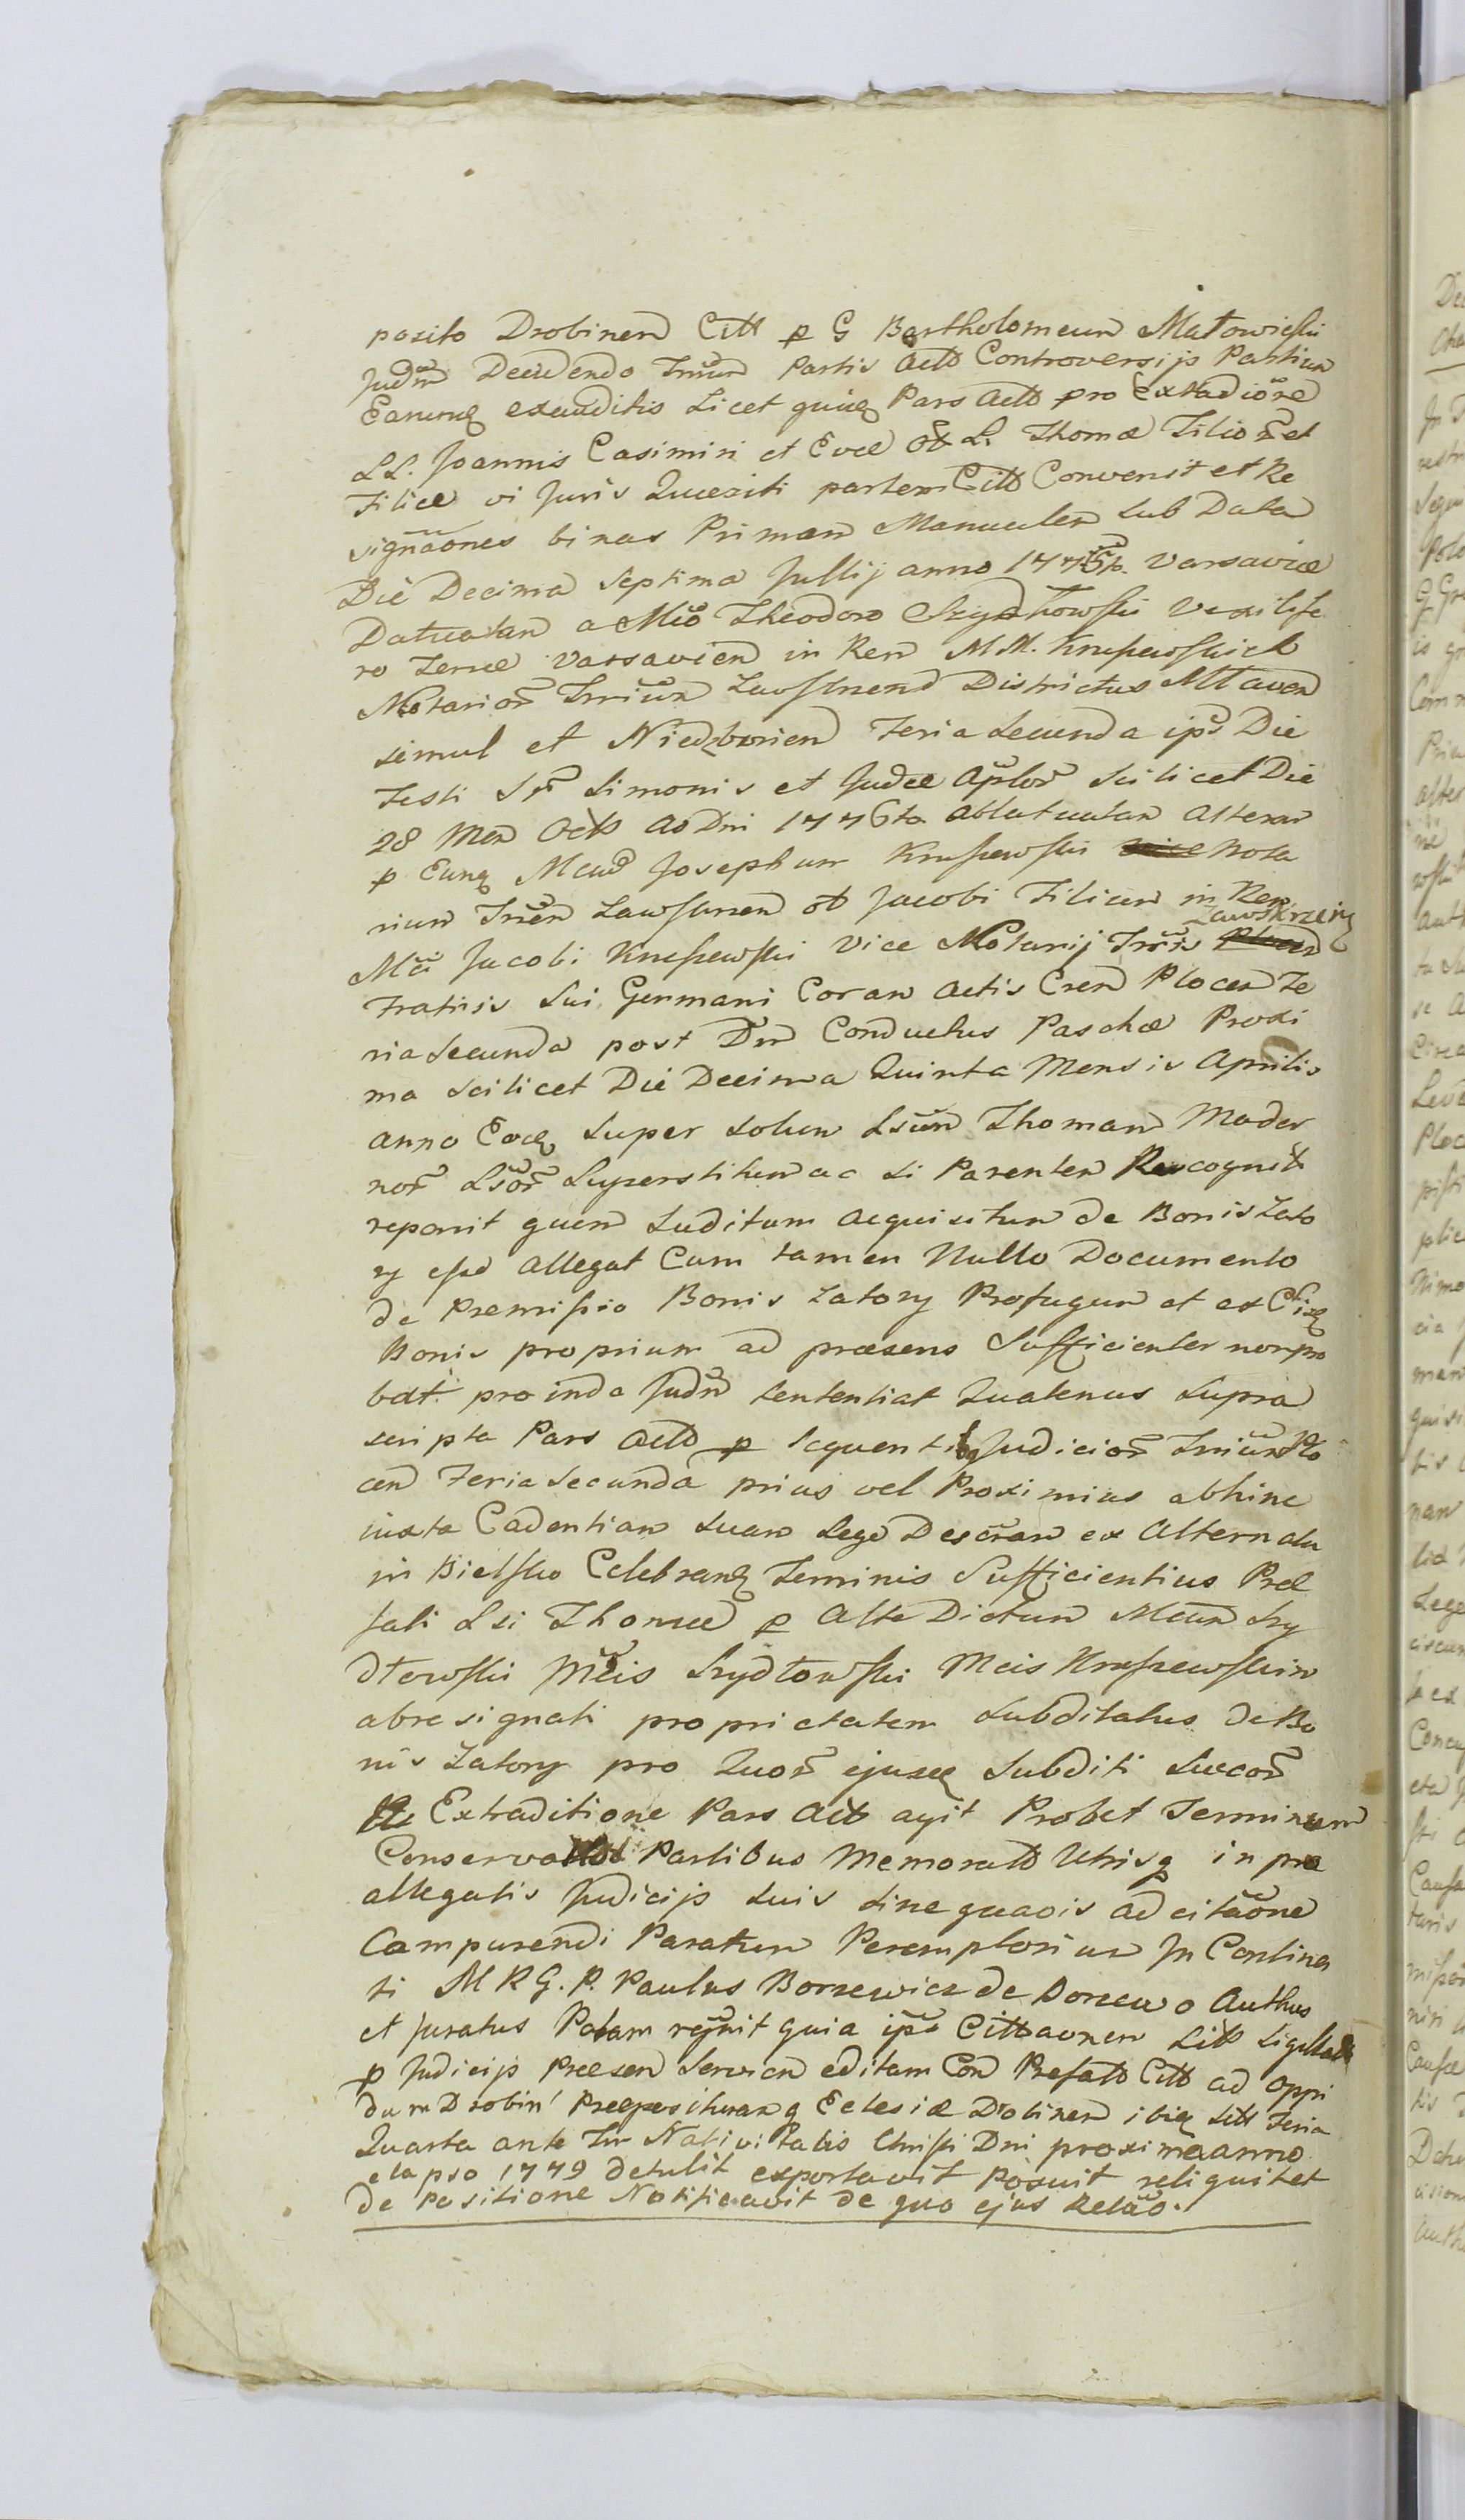 posito Drobinen Citt p G Bartholomeum Małowieski
Judm Decidendo Trium Partis Actt Controversijs Partium
Earumq exauditis Licet quiq Pars Actt pro Extradione
LL. Joannis Casimiri et Evæ ott L. Thomæ Filior et
Filiæ vi Juris Quæsiti partem Citt Convenit et Re
signaones binas Primam Manualem sub Data
Die Decima Septima Jullij anno 1776to. Varsaviæ
Datuatam a Mco Theodoro Szydłowski Vexilife
ro Terræ Varsavien in Rem MM. Kruszewskich
Notarior Trium Zawskrnen Districtus Mlaven
simul et Niedzborien Feria Secunda ips Die
Festi SS Simonis et Judæ Aplor scilicet Die
28 Men Octb Ao Dni 1776to ablatuatam alteram
p Eunq Mcum Josephum Kruszewski Nota
rium Tren Zawskrnen ott Jacobi Filium in Rem
Mci Jacobi Kruszewski Vice Notarij Trris Zawskrzeņ
Fratris Sui Germani Coram Actis Cren Plocen Fe
ria Secunda post Dm Conductus Paschæ Proxi
ma scilicet Die Decima Quinta Mensis Aprilis
anno Eoq super solum Lsum Thomam Moder
nor Lsor Superstitum ac si Parentem Recognit
reponit quem Suditum acquisitum de Bonis Zato
ry esse allegat Cum tamen Nullo Documento
de Premissis Bonis Zatory Profugum et ex
Bonis proprium ad præsens Sufficienter non pro
bat. proinde Judm sententiat Quatenus supra
scripta Pars Actt p sequentibq Judicior Trium Plo
cen Feria Secunda prius vel Proximius abhinc
iuxta Cadentiam suam Lege Descram ex Alternata
in Bielsko Celebranq Terminis Sufficientius Præ
fati Lsi Thomæ p Alte Dictum Mcum Szy
dłowski Mcis Szydłowski Mcis Kruszewskim
abresignati proprietatem subditatus de Bo
nis Zatory pro Quor ejusq Subditi Succor
Extraditione Pars Actt agit Probet Terminum
Conservatt Partibus Memoratt Utrisq in præ
allegatis Judicijs suis sine quavis ad citaone
Comparendi Paratum Peremptorium In Continen
ti MRG. P. Paulus Borzewicz de Borzewo Authus
et Juratus Palam rgnit quia ips Cittaonem Litt Sigillatt
p Judicijs Præsen Servien editam Con Prefatt Citt ad oppi
dum Drobin Præposituramq Eclesiæ Drobinen ibiq sitt Feria
Quarta ante Fm Nativitatis Christi Dni proxima anno
elapso 1779 detulit exportavit posuit reliquit et
de Positione Notificavit de quo ejus Relao.